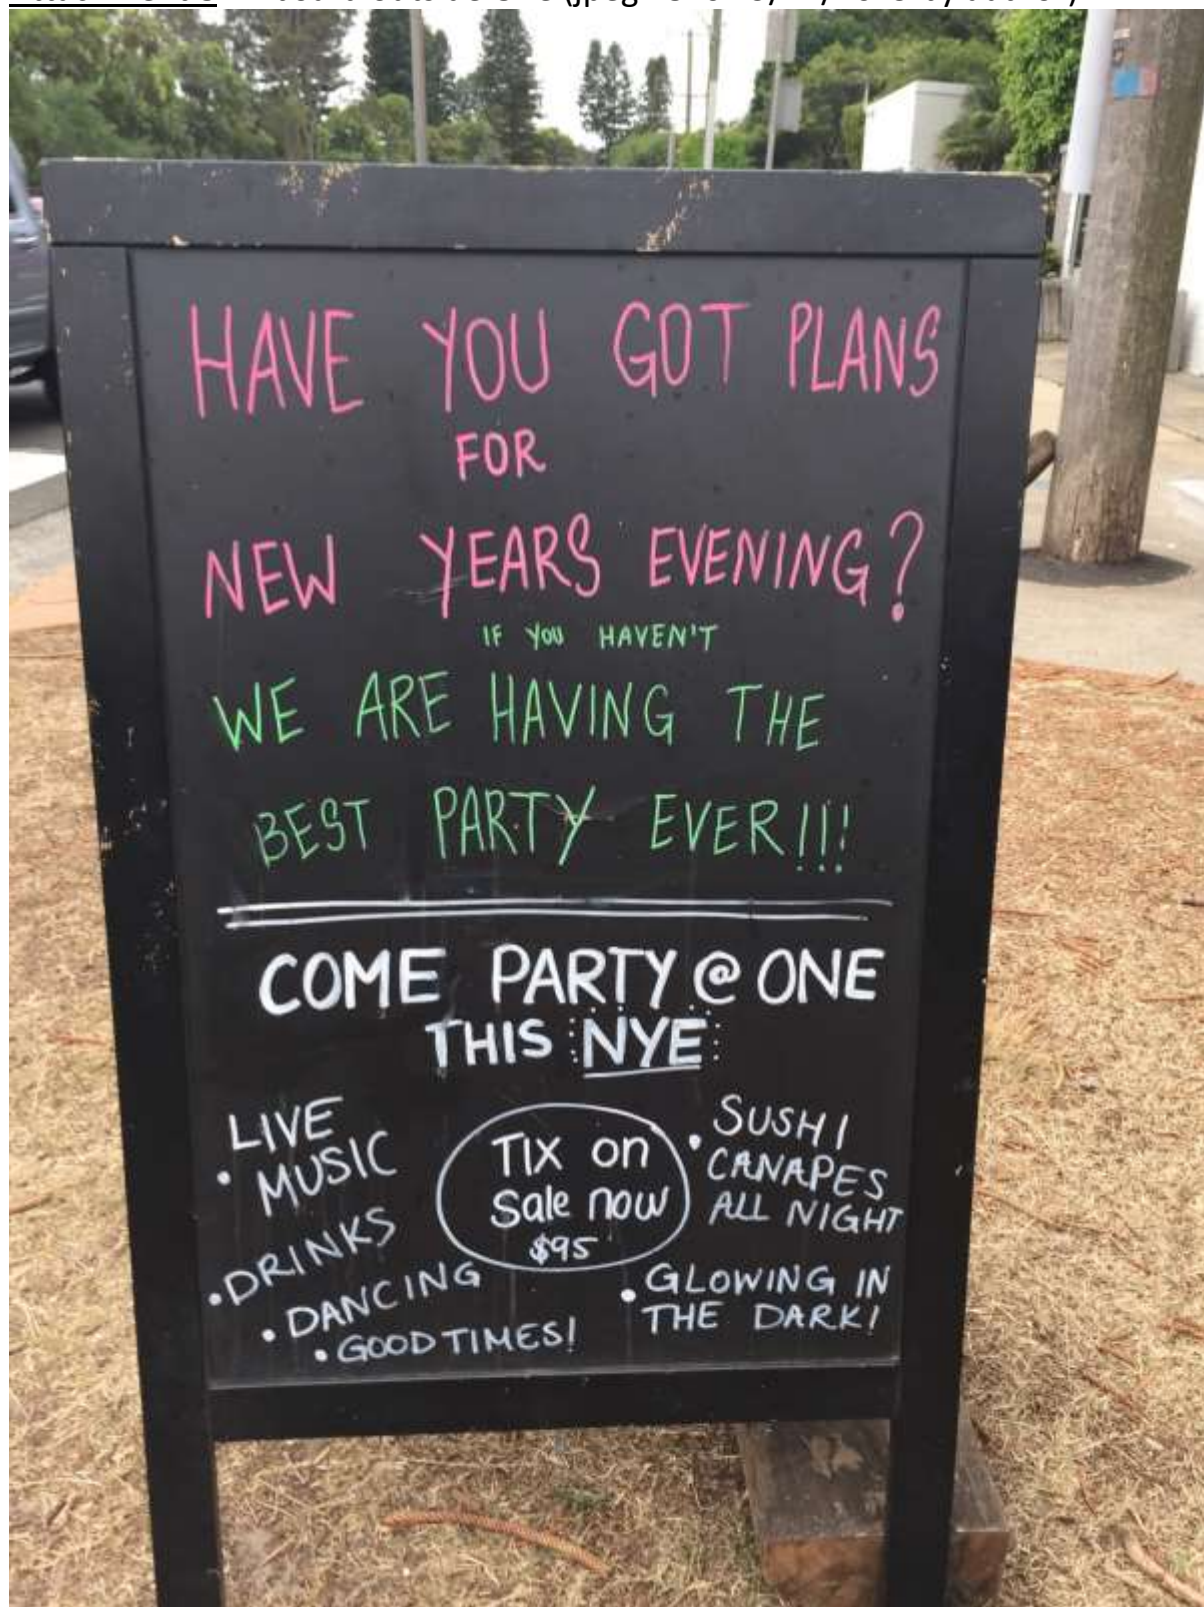 HAVE YOU GOT PLANS
FOR
NEW YEARS EVENING?
IF YOU HAVEN'T
WE ARE HAVING THE
BEST PARTY EVER!!!
COME PARTY @ ONE
THIS NYE
• LIVE
MUSIC
• DRINKS
• DANCING
• GOOD TIMES!
TIX on
Sale now
$95
• SUSHI
CANAPES
ALL NIGHT
• GLOWING IN
THE DARK!